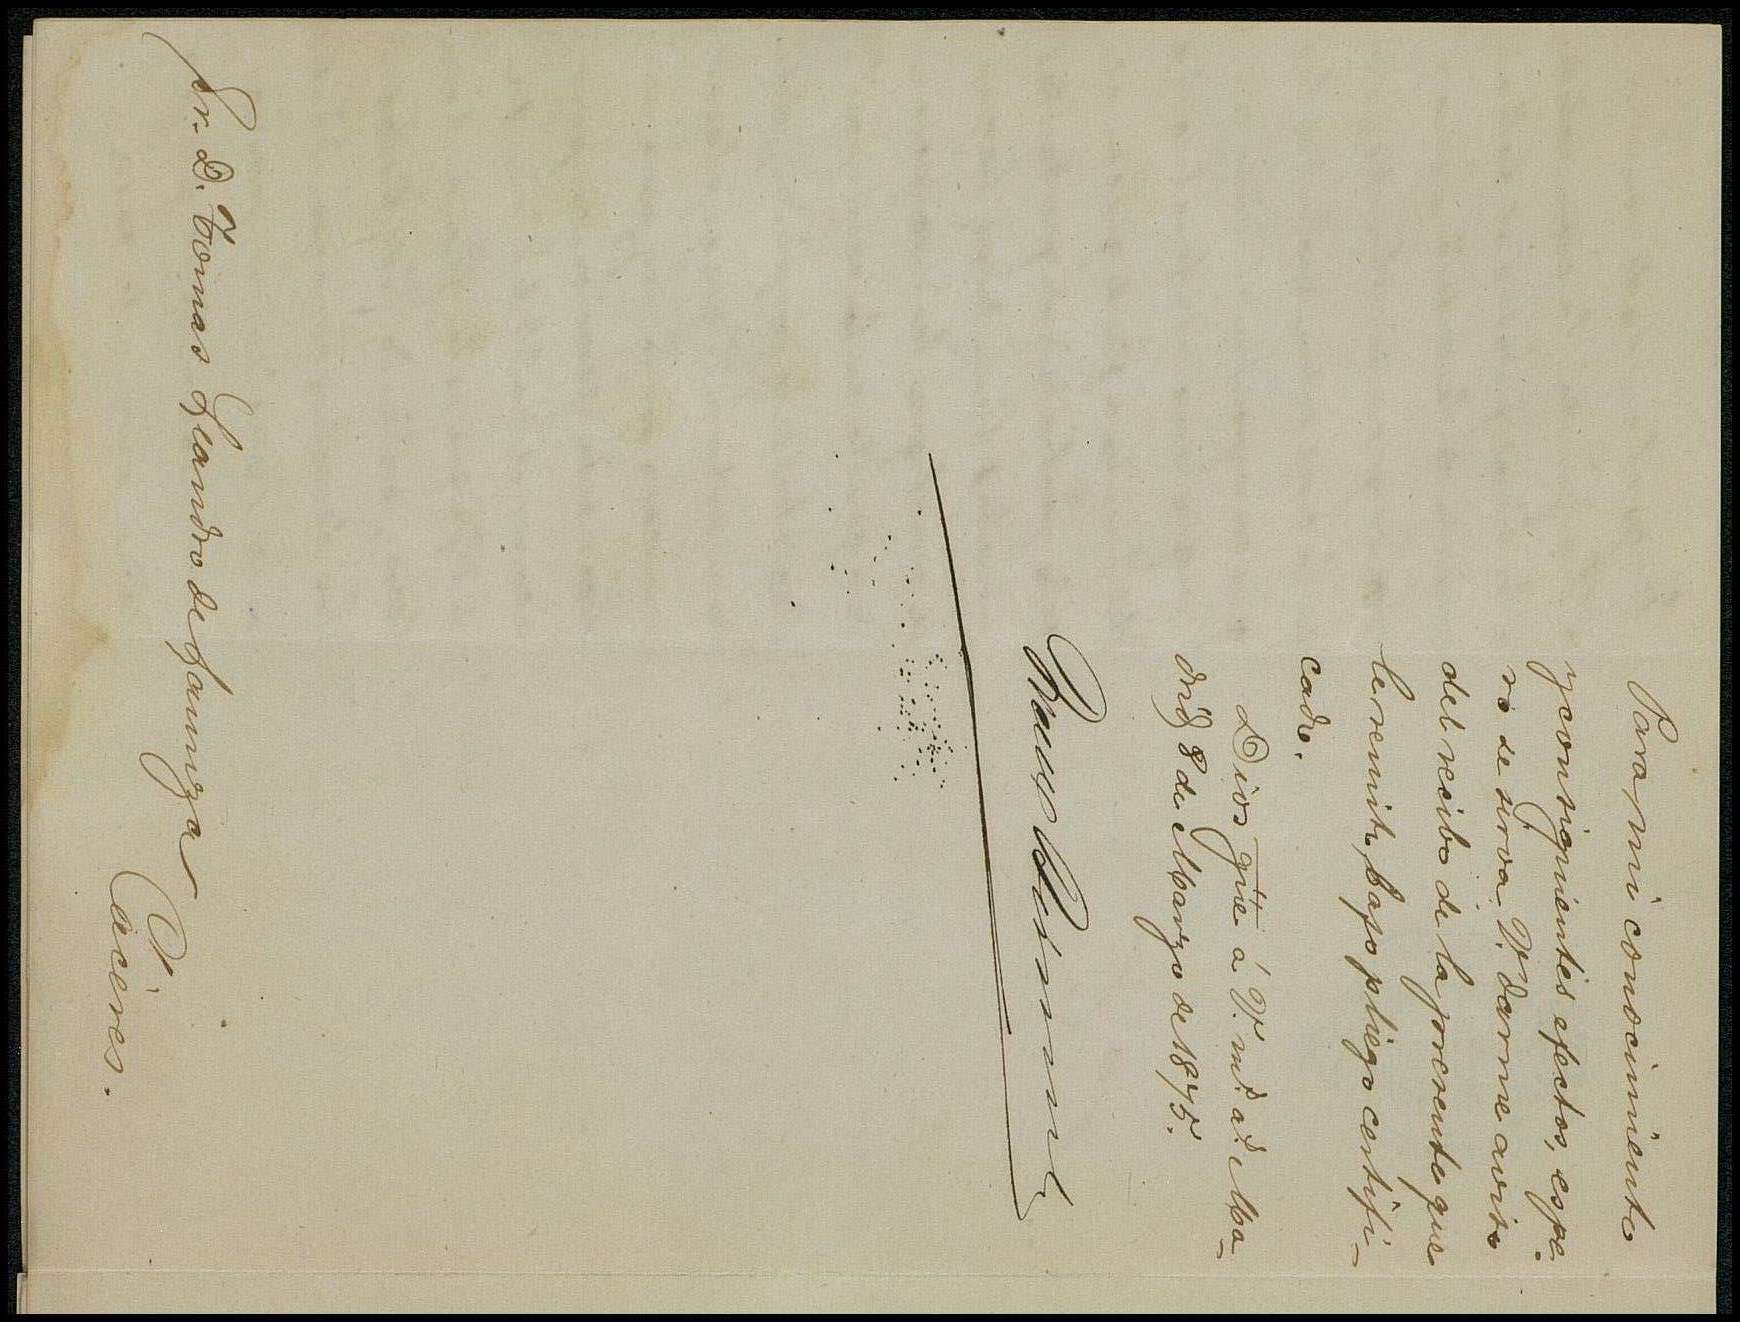 Para mi conocimiento
y consiguientes efectos, espe-
ro se sirva V. darme aviso
del recibo de la presente que
le remito, bajo pliego certifi-
cado.
Dios gue á V. ms. as. Ma-
drid 8 de Marzo de 1875.
Sr. D. Tomas Leandro de Launza
Cáceres.